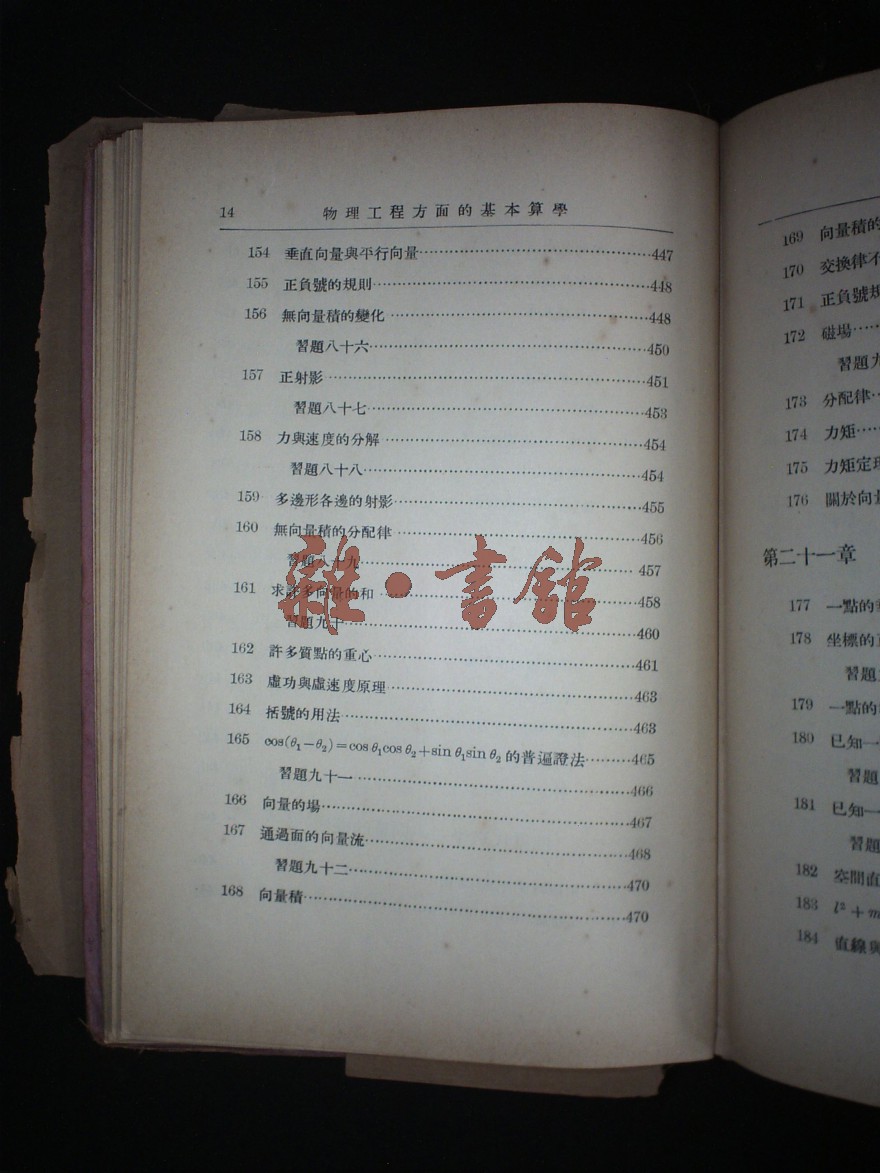 14 物理工程方面的基本算學
154 垂直向量與平行向量……447
155 正負號的規則……448
156 無向量積的變化……448
習題八十六……450
157 正射影……451
習題八十七……453
158 力與速度的分解……454
習題八十八……454
159 多邊形各邊的射影……455
160 無向量積的分配律……456
習題八十九……457
161 求許多向量的和……458
習題九十……460
162 許多質點的重心……461
163 虛功與虛速度原理……463
164 括號的用法……463
165 cos(θ₁−θ₂)=cos θ₁cos θ₂+sin θ₁sin θ₂ 的普遍證法……465
習題九十一……466
166 向量的場……467
167 通過面的向量流……468
習題九十二……470
168 向量積……470
雜·書館
169 向量積的
170 交換律不
171 正負號規
172 磁場……
習題九
173 分配律…
174 力矩……
175 力矩定理
176 關於向量
第二十一章
177 一點的
178 坐標的
習題
179 一點的
180 已知一
習題
181 已知一
習題
182 空間直
183 l² + m
184 直線與